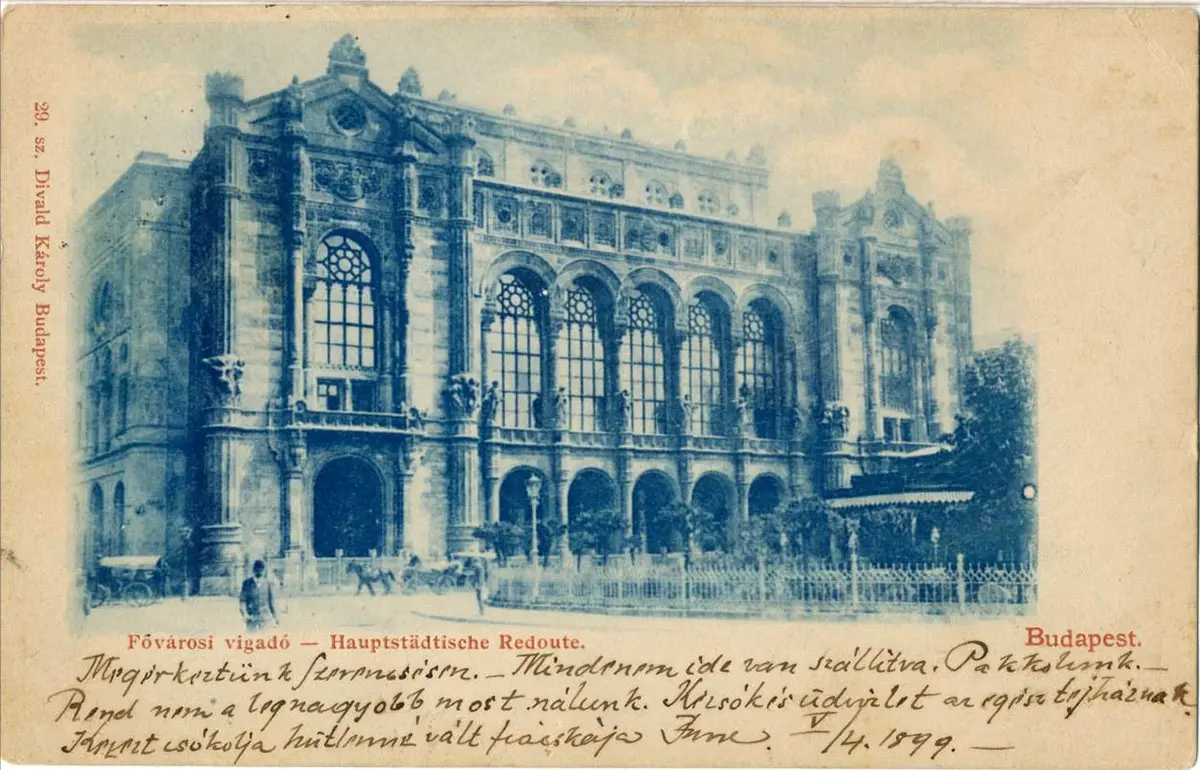 29. sz. Divald Károly Budapest.
Fővárosi vigadó — Hauptstädtische Redoute.
Budapest.
Megérkeztünk szerencsésen. — Mindenem ide van szállitva. Pakkolunk. —
Rend nem a legnagyobb most nálunk. Kézcsók és üdvözlet az egész tejháznak
Kezeit csókolja hűtlenné vált fiacskája
V/4. 1899. —